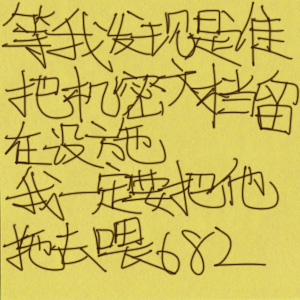 等我发现是谁
把机密文档留
在设施
我一定要把他
拖去喂682